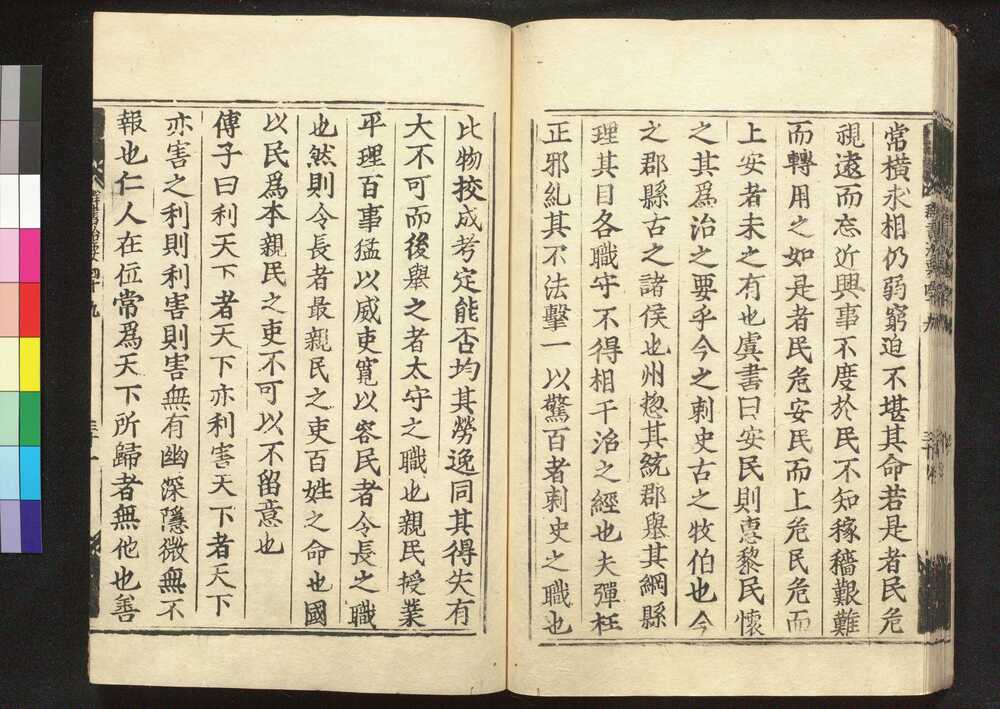 常橫求相仍弱窮迫不堪其命若是者民危
視遠而忘近興事不度於民不知稼穡艱難
而轉用之如是者民危安民而上危民危而
上安者未之有也虞書曰安民則惠黎民懷
之其爲治之要乎今之刺史古之牧伯也今
之郡縣古之諸侯也州惣其統郡舉其綱縣
理其目各職守不得相干治之經也夫彈枉
正邪糺其不法擊一以驚百者刺史之職也
比物挍成考定能否均其勞逸同其得失有
大不可而後舉之者太守之職也親民授業
平理百事猛以威吏寬以容民者令長之職
也然則令長者最親民之吏百姓之命也國
以民爲本親民之吏不可以不留意也
傳子曰利天下者天下亦利害天下者天下
亦害之利則利害則害無有幽深隱微無不
報也仁人在位常爲天下所歸者無他也善
群書治要四十九
三十一